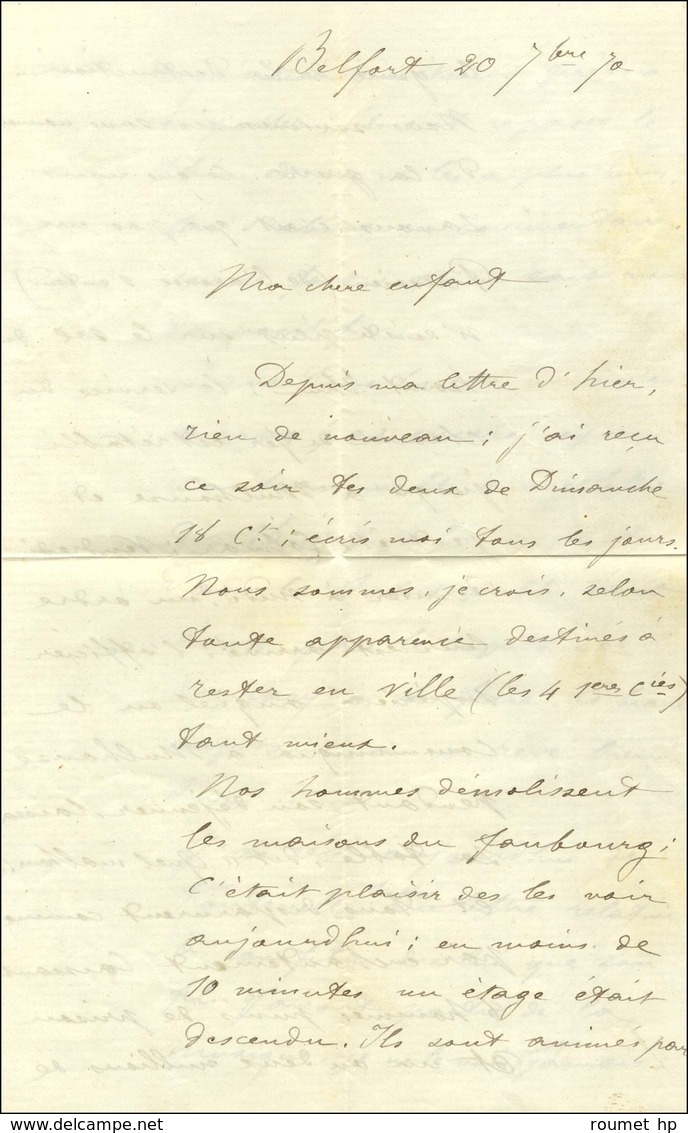 Belfort 20 7bre 70
Ma chère enfant
Depuis ma lettre d'hier,
rien de nouveau ; j'ai reçu
ce soir tes deux de Dimanche
18 Ct ; écris moi tous les jours.
Nous sommes, je crois, selon
toute apparence destinés à
rester en ville (les 4 1eres Cies)
tant mieux.
Nos hommes démolissent
les maisons du faubourg ;
C'était plaisir des les voir
aujourdhui ; en moins de
10 minutes un étage était
descendu. Ils sont animés par
roumet hp
delcampe.net